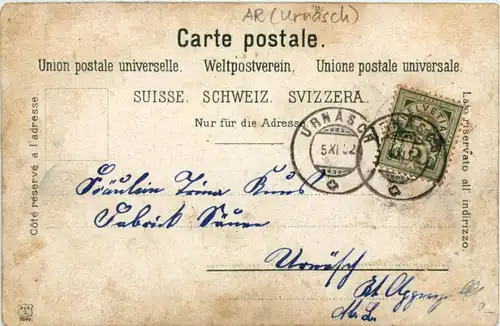 AR (Urnäsch)
Carte postale.
Union postale universelle. Weltpostverein. Unione postale universale.
SUISSE. SCHWEIZ. SVIZZERA.
Nur für die Adresse
Côté réservé à l'adresse.
Lato riservato all' indirizzo.
URNÄSCH
5 XI 02
HELVETIA
5
Fräulein
Fabrik
Urnäsch
Kt.